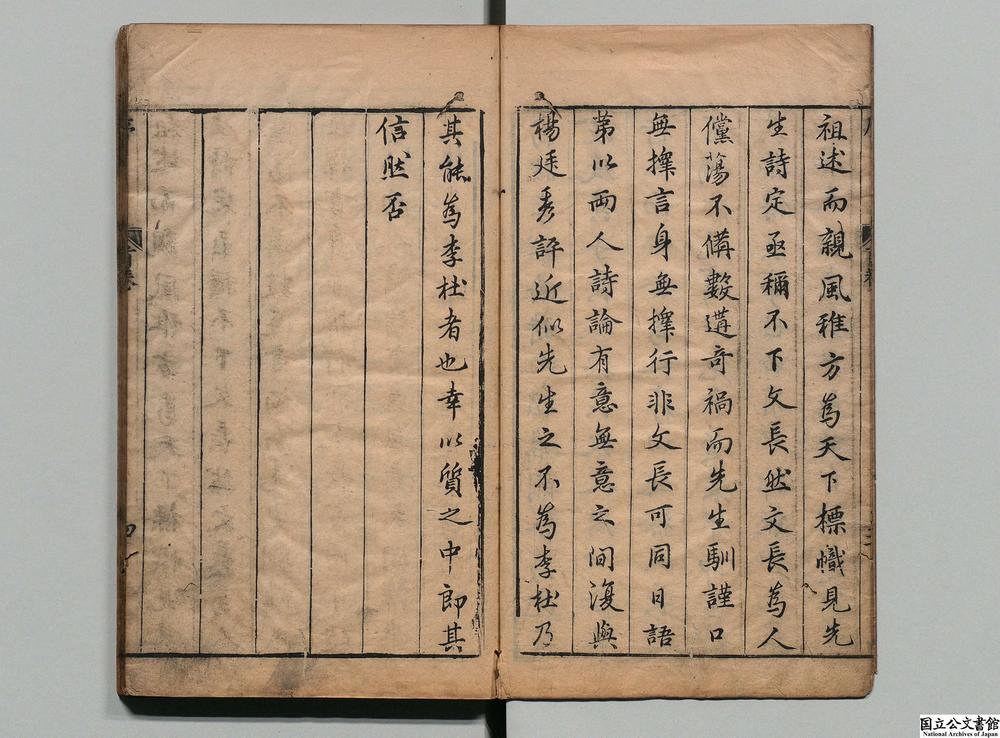 祖述而親風雅方爲天下標幟見先
生詩定亟稱不下文長然文長爲人
儻蕩不備數遘奇禍而先生馴謹口
無擇言身無擇行非文長可同日語
第以兩人詩論有意無意之間復與
楊廷秀評近似先生之不爲李杜乃
其能爲李杜者也幸以質之中郎其
信然否
序
四
国立公文書館
National Archives of Japan